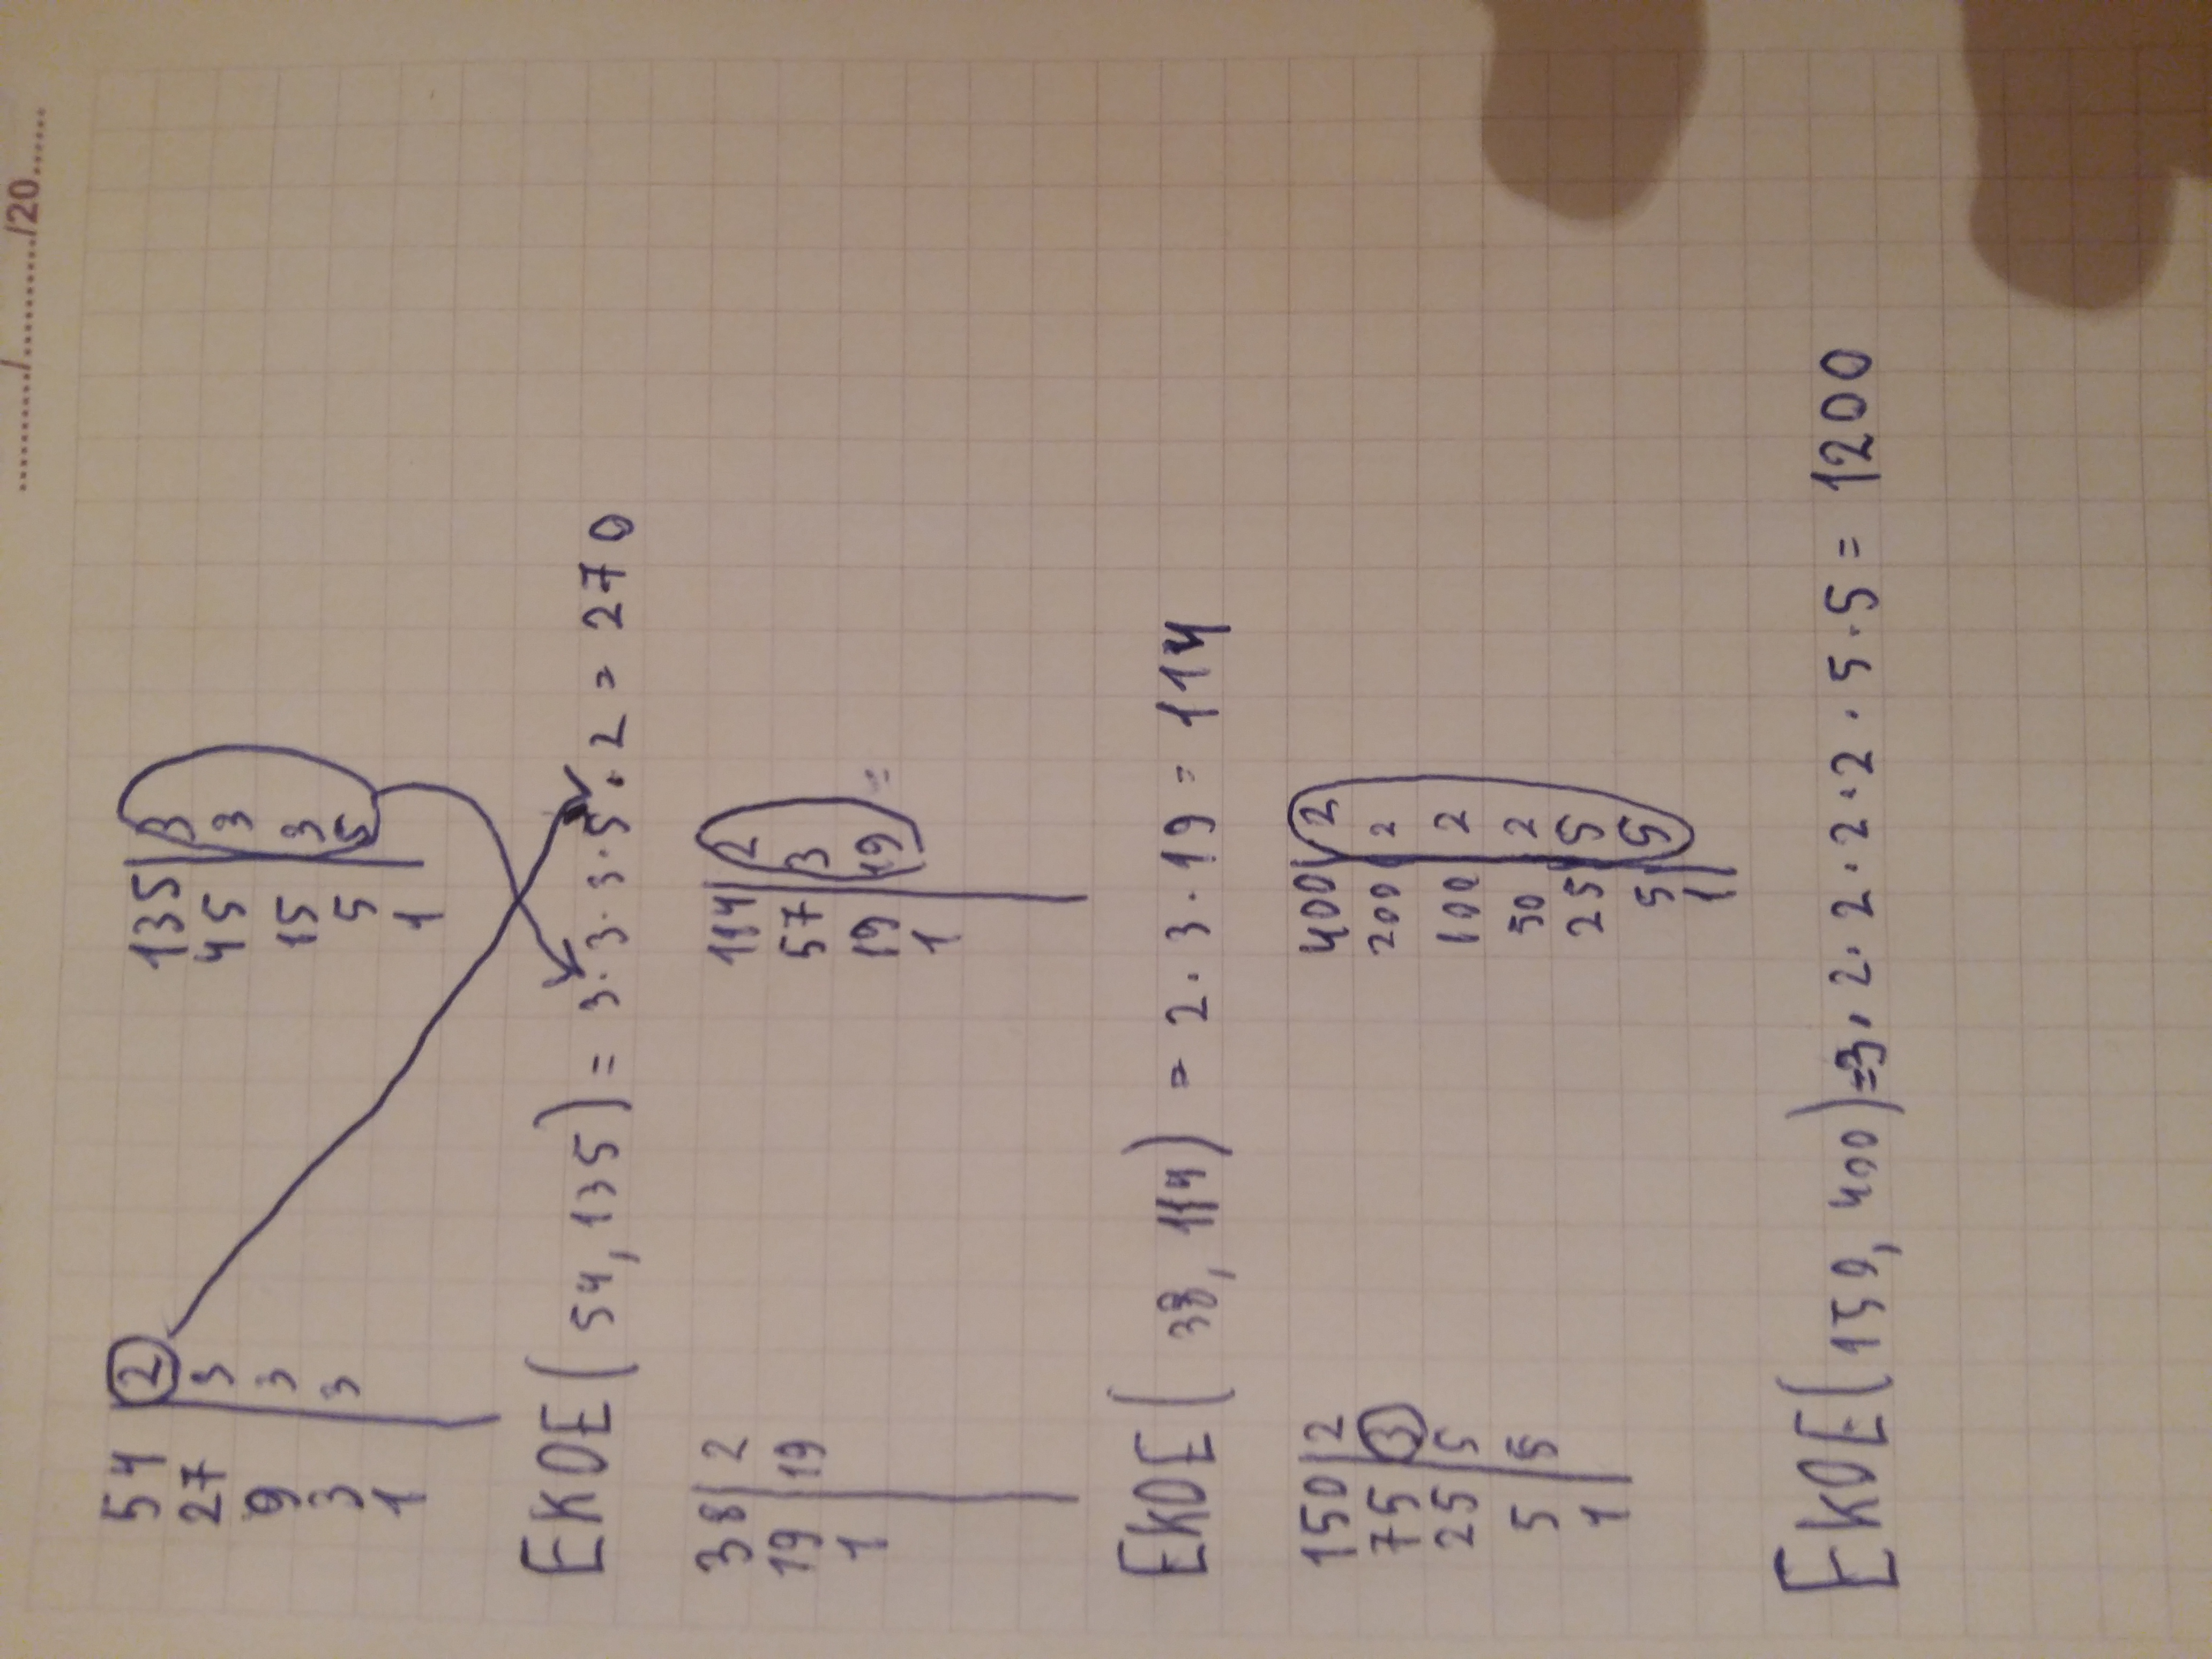 ........./............/20......
54 2 135 3
27 3 45 3
9 3 15 3
3 5 5
1 1
EKOE(54,135) = 3·3·3·5·2 = 270
38 2 114 2
19 19 57 3
1 19 19
1
EKOE(38,114) = 2·3·19 = 114
150 2 400 2
75 3 200 2
25 5 100 2
5 5 50 2
1 25 5
5 5
1
EKOE(150,400)=3·2·2·2·2·5·5 = 1200